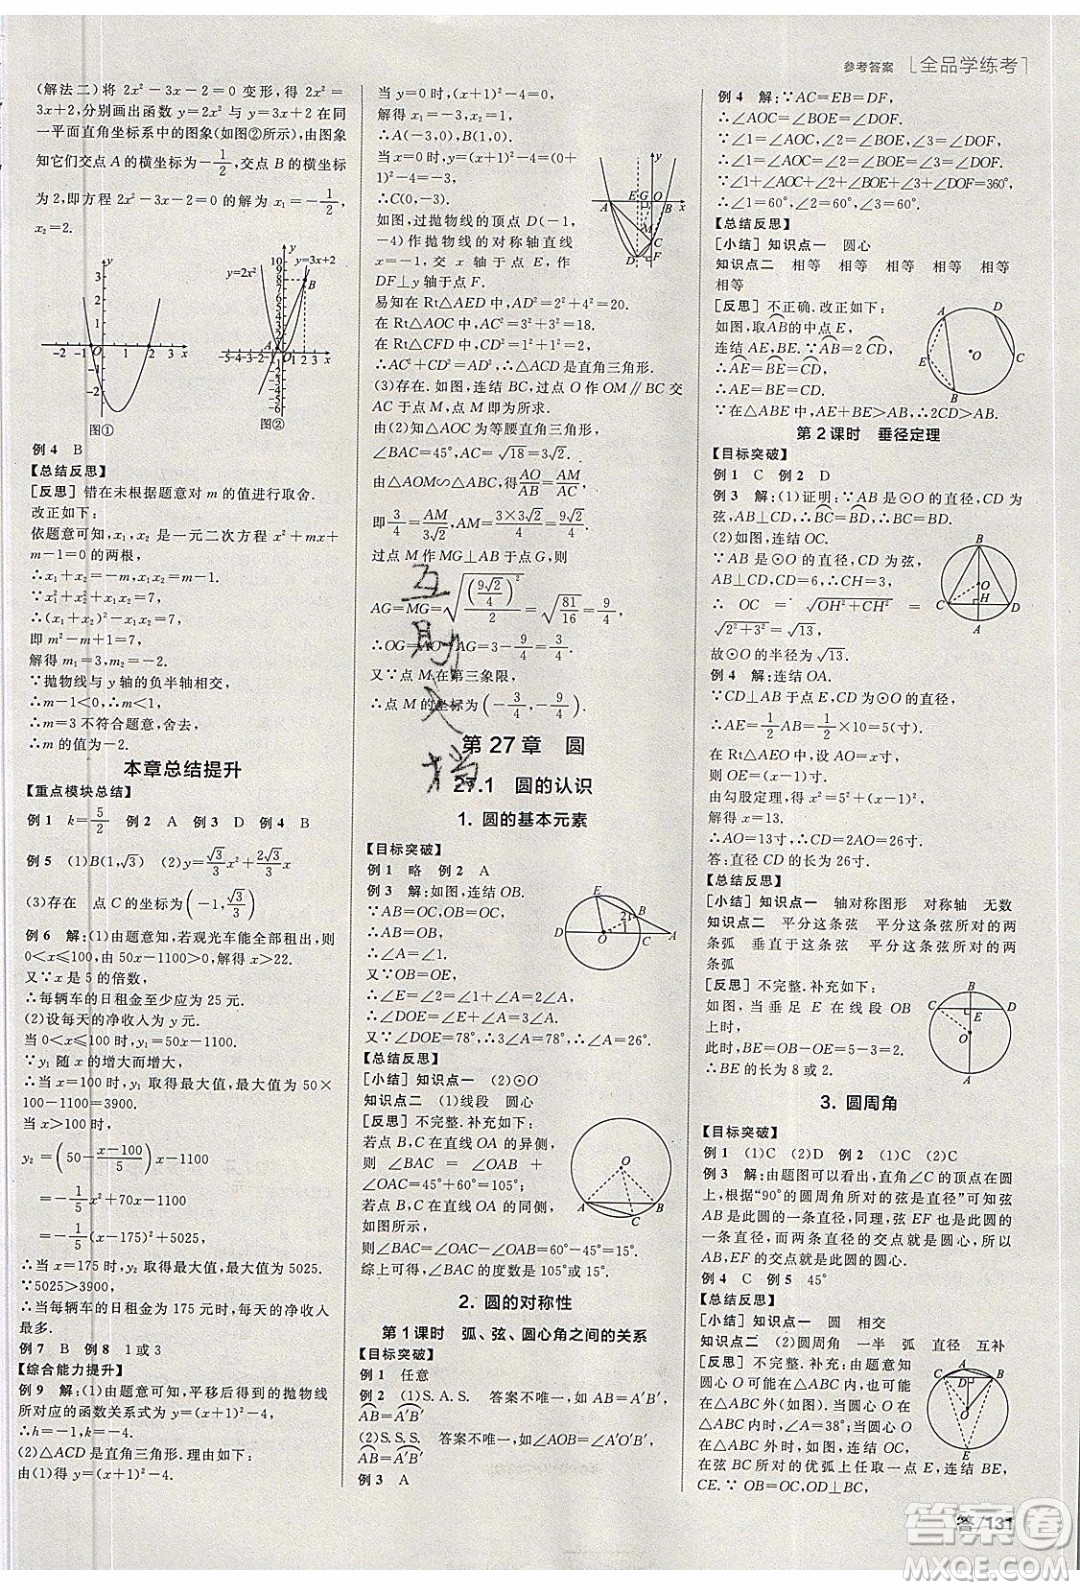 参考答案 [全品学练考]
(解法二)将 2x²-3x-2=0 变形,得 2x²=
3x+2,分别画出函数 y=2x² 与 y=3x+2 在同
一平面直角坐标系中的图象(如图②所示),由图象
知它们交点 A 的横坐标为-1/2,交点 B 的横坐标
为 2,即方程 2x²-3x-2=0 的解为 x₁=-1/2,
x₂=2.
图① 图②
例 4 B
【总结反思】
[反思] 错在未根据题意对 m 的值进行取舍.
改正如下:
依题意可知,x₁,x₂ 是一元二次方程 x²+mx+
m-1=0 的两根,
∴x₁+x₂=-m,x₁x₂=m-1.
∵x₁²+x₂²=(x₁+x₂)²-2x₁x₂=7,
即 m²-m+1=0,
解得 m₁=3,m₂=-2.
∵抛物线与 y 轴的负半轴相交,
∴m-1<0,∴m<1,
∴m=3 不符合题意,舍去,
∴m 的值为-2.
本章总结提升
【重点模块总结】
例 1 k=5/2 例 2 A 例 3 D 例 4 B
例 5 (1)B(1,√3) (2)y=√3/3x²+2√3/3x
(3)存在 点 C 的坐标为(-1,√3/3)
例 6 解:(1)由题意知,若观光车能全部租出,则
0<x≤100,由 50x-1100>0,解得 x>22.
又∵x 是 5 的倍数,
∴每辆车的日租金至少应为 25 元.
(2)设每天的净收入为 y 元.
当 0<x≤100 时,y₁=50x-1100.
∵y₁ 随 x 的增大而增大,
∴当 x=100 时,y₁ 取得最大值,最大值为 50×
100-1100=3900.
当 x>100 时,
y₂=(50-(x-100)/5)x-1100
=-1/5x²+70x-1100
=-1/5(x-175)²+5025,
∴当 x=175 时,y₂ 取得最大值,最大值为 5025.
∵5025>3900,
∴当每辆车的日租金为 175 元时,每天的净收入
最多.
例 7 B 例 8 1 或 3
【综合能力提升】
例 9 解:(1)由题意可知,平移后得到的抛物线
所对应的函数关系式为 y=(x+1)²-4,
∴h=-1,k=-4.
(2)△ACD 是直角三角形.理由如下:
由(1)得 y=(x+1)²-4.
当 y=0 时,(x+1)²-4=0,
解得 x=-3 或 x=1,
∴A(-3,0),B(1,0).
当 x=0 时,y=(x+1)²-4=(0+
1)²-4=-3,
∴C(0,-3).
如图,过抛物线的顶点 D(-1,
-4)作抛物线的对称轴直线
x=-1,交 x 轴于点 E,作
DF⊥y 轴于点 F.
易知在 Rt△AED 中,AD²=2²+4²=20.
在 Rt△AOC 中,AC²=3²+3²=18,
在 Rt△CFD 中,CD²=1²+1²=2,
∴AC²+CD²=AD²,∴△ACD 是直角三角形.
(3)存在.如图,连结 BC,过点 O 作 OM∥BC 交
AC 于点 M,点 M 即为所求.
由(2)可知△AOC 为等腰直角三角形,
∠BAC=45°,AC=√18=3√2.
由△AOM∽△ABC,得AO/AB=AM/AC,
即3/4=AM/3√2,AM=3×3√2/4=9√2/4.
过点 M 作 MG⊥AB 于点 G,则
AG=MG=√((9√2/4)²/2)=√(81/16)=9/4,
∴OG=AO-AG=3-9/4=3/4.
又∵点 M 在第三象限,
∴点 M 的坐标为(-3/4,-9/4).
第 27 章 圆
27.1 圆的认识
1. 圆的基本元素
【目标突破】
例 1 略 例 2 A
例 3 解:如图,连结 OB.
∵AB=OC,OB=OC,
∴AB=OB,
∴∠A=∠1.
又∵OB=OE,
∴∠E=∠2=∠1+∠A=2∠A,
∴∠DOE=∠E+∠A=3∠A.
又∵∠DOE=78°,∴3∠A=78°,∴∠A=26°.
【总结反思】
[小结] 知识点一 (2)⊙O
知识点二 (1)线段 圆心
[反思] 不完整.补充如下:
若点 B,C 在直线 OA 的异侧,
则∠BAC=105°;
若点 B,C 在直线 OA 的同侧,
∠OAC=45°+∠OAB=45°+60°,
如图所示,
则∠BAC=∠OAC-∠OAB=60°-45°=15°.
综上可得,∠BAC 的度数是 105°或 15°.
2. 圆的对称性
第 1 课时 弧、弦、圆心角之间的关系
【目标突破】
例 1 任意
例 2 (1)S.A.S. 答案不唯一,如 AB=A′B′,
AB=A′B′
(2)S.S.S. 答案不唯一,如∠AOB=∠A′OB′,
AB=A′B′
例 3 A
例 4 解:∵AC=EB=DF,
∴∠AOC=∠BOE=∠DOF.
∵∠1+∠AOC+∠2+∠BOE+∠3+∠DOF=360°,
∴∠1=60°,∴∠2=∠3=∠1=60°.
【总结反思】
[小结] 知识点一 圆心
知识点二 相等 相等 相等 相等 相等
相等
[反思] 不正确.改正如下:
如图,取AB的中点 E,
连结 AE,BE.∵AB=2CD,
∴AE=BE=CD,
∴AE=BE=CD.
∵在△ABE 中,AE+BE>AB,∴2CD>AB.
第 2 课时 垂径定理
【目标突破】
例 1 C 例 2 D
例 3 解:(1)证明:∵AB 是⊙O 的直径,CD 为
弦,AB⊥CD,∴BC=BD,∴BC=BD.
(2)如图,连结 OC.
∵AB 是⊙O 的直径,CD 为弦,
AB⊥CD,CD=6,∴CH=3,
∴OC=√(OH²+CH²)=
√(2²+3²)=√13,
故⊙O 的半径为 √13.
例 4 解:连结 OA.
∵CD⊥AB,且 CD 为⊙O 的直径,
∴AE=1/2AB=1/2×10=5(寸).
在 Rt△AEO 中,设 AO=x 寸,
则 OE=(x-1)寸.
由勾股定理,得 x²=5²+(x-1)²,
解得 x=13,
∴AO=13寸,∴CD=2AO=26寸.
答:直径 CD 的长为 26寸.
【总结反思】
[小结] 知识点一 轴对称图形 对称轴 无数
知识点二 平分这条弦 平分这条弦所对的两
条弧 垂直于这条弦 平分这条弦所对的两
条弧
[反思] 不完整.补充如下:
如图,当垂足 E 在线段 OB 上
时,OE=3.
此时,BE=OB-OE=5-3=2,
∴BE 的长为 8 或 2.
3. 圆周角
【目标突破】
例 1 (1)C (2)D 例 2 (1)C (2)C
例 3 解:由题图可以看出,直角∠C 的顶点在圆
上,根据“90°的圆周角所对的弦是直径”可知弦
AB 为此圆的一条直径,同理,弦 EF 也为此圆的
一条直径,故 AB,EF 的交点就是圆心,
即 AB,EF 的交点就是此圆的圆心.
例 4 C 例 5 45°
【总结反思】
[小结] 知识点一 圆 相交
知识点二 (2)圆周角 一半 弧 直径 互补
[反思] 不完整.补充如下:①
在△ABC 外(如图).
在△ABC 中,∠A=38°;当圆心 O
在△ABC 内部时,
在弦 AB 所对的优弧上取一点 E,连结 BE,
CE.∵OB=OC,OD⊥BC,
答/131
互助文档
答案圈
MXQE.COM